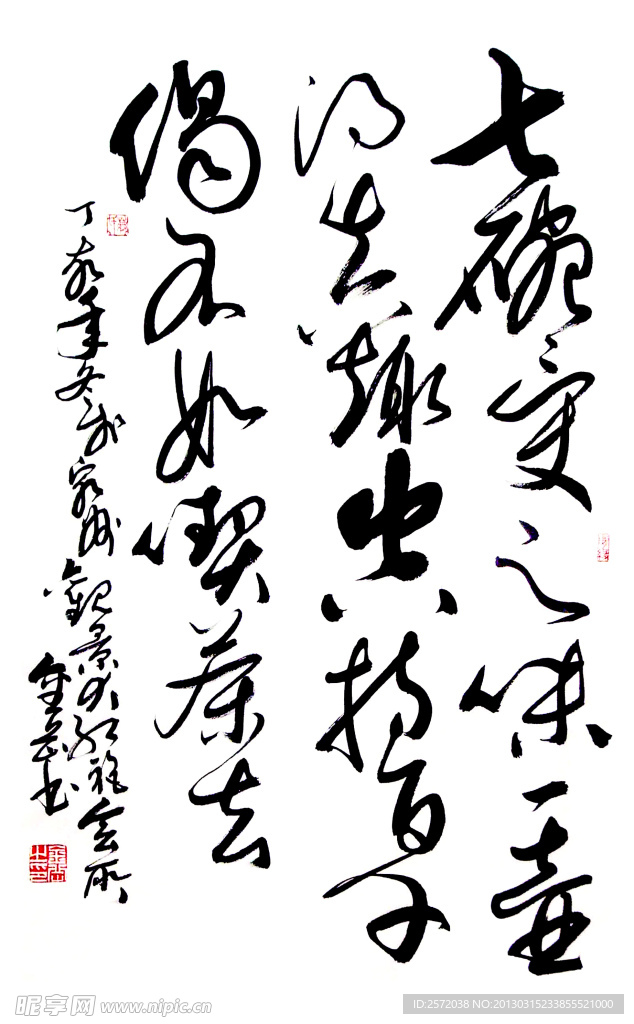 七碗受之味一壺
得真趣空持百千
偈不如喫茶去
丁亥年冬
觀景
會所
書
昵享网 www.nipic.cn
ID:2572038 NO:20130315233855521000